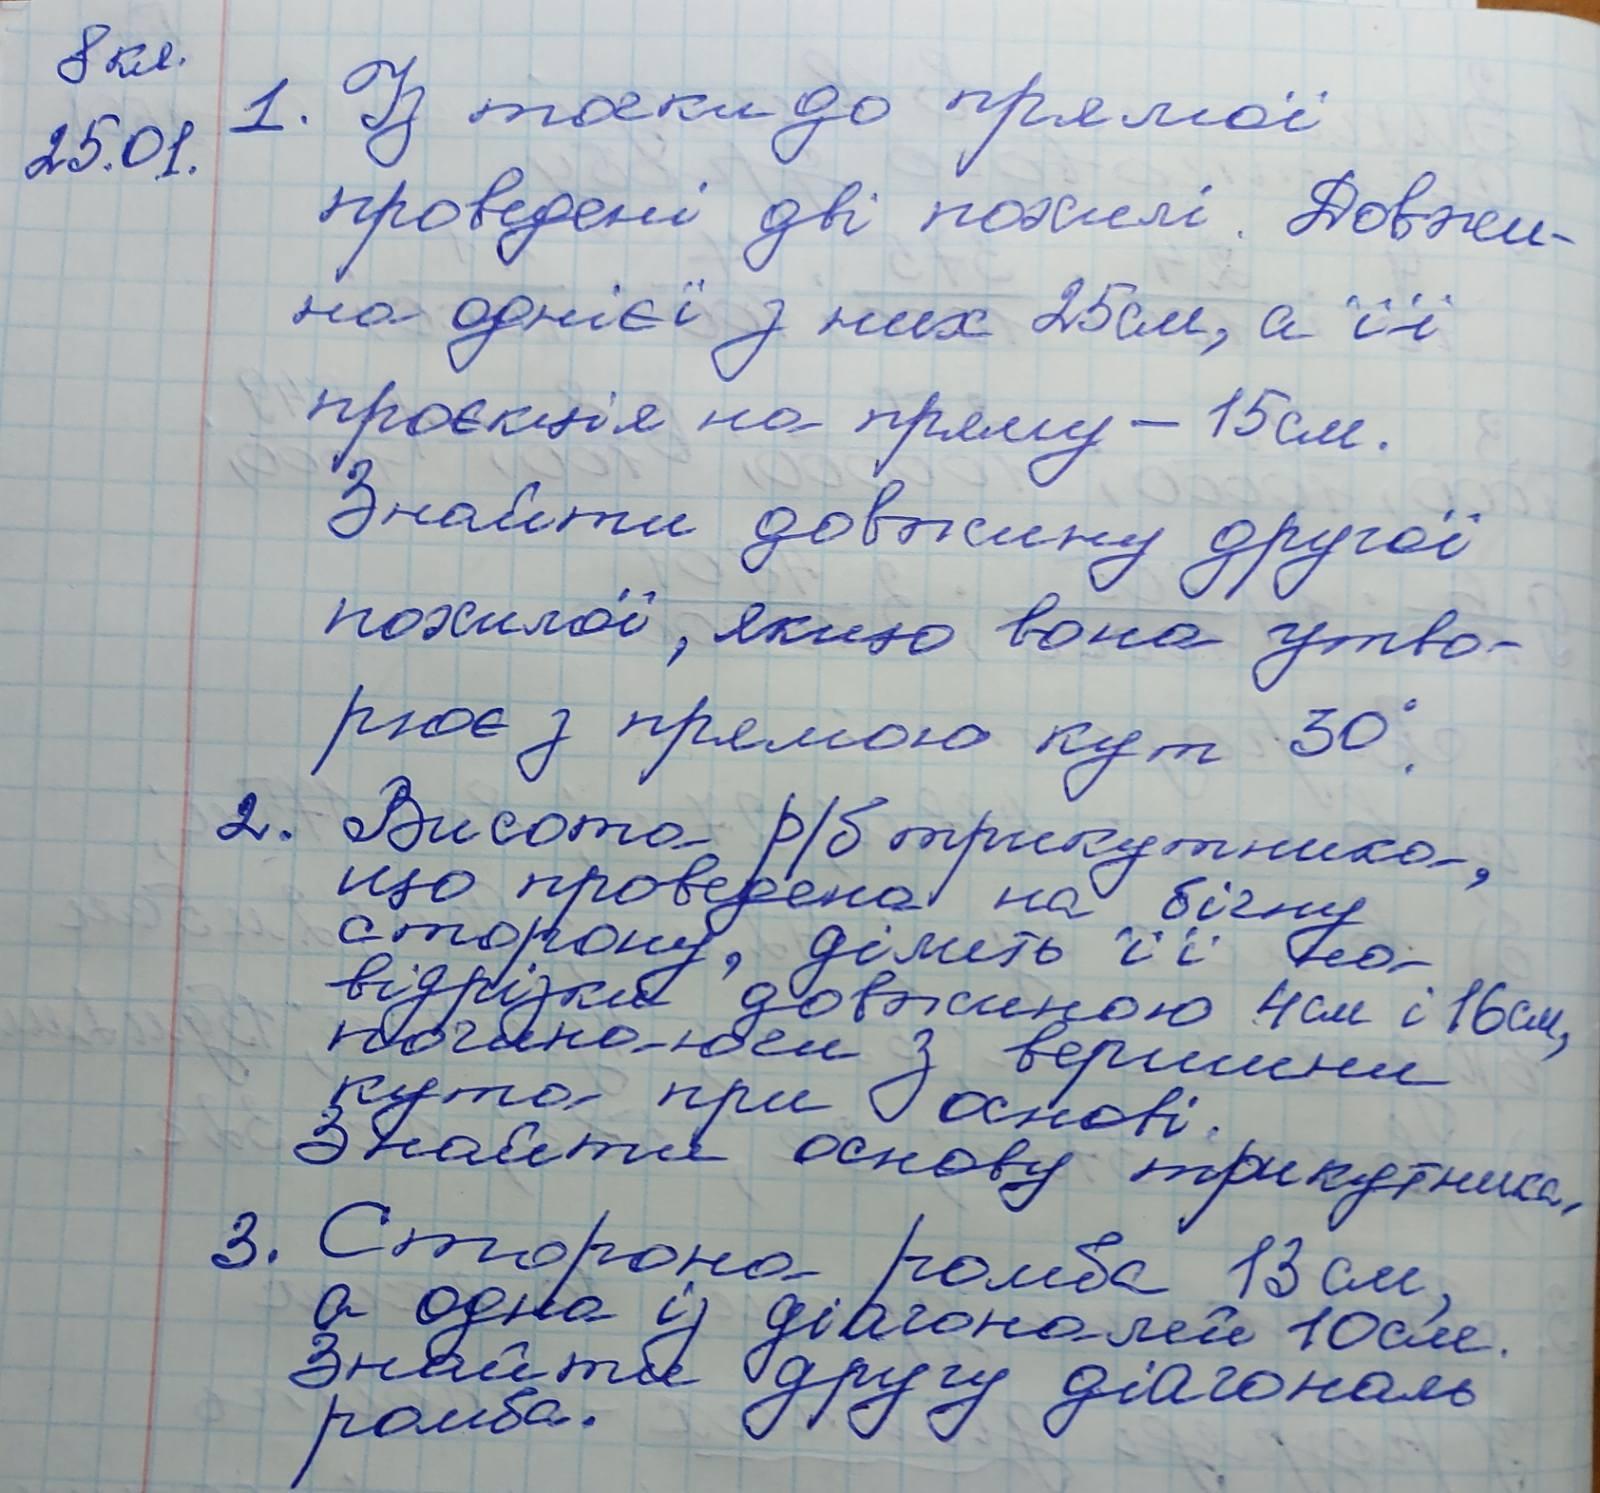 8 кл.
25.01.
1. Із точки до прямої
проведені дві похилі. Довжи-
на однієї з них 25см, а її
проєкція на пряму – 15см.
Знайти довжину другої
похилої, якщо вона утво-
рює з прямою кут 30°.
2. Висота р/б трикутника,
що проведена на бічну
сторону, ділить її на
відрізки довжиною 4см і 16см,
починаючи з вершини
кута при основі.
Знайти основу трикутника.
3. Сторона ромба 13 см,
а одна із діагоналей 10см.
Знайти другу діагональ
ромба.